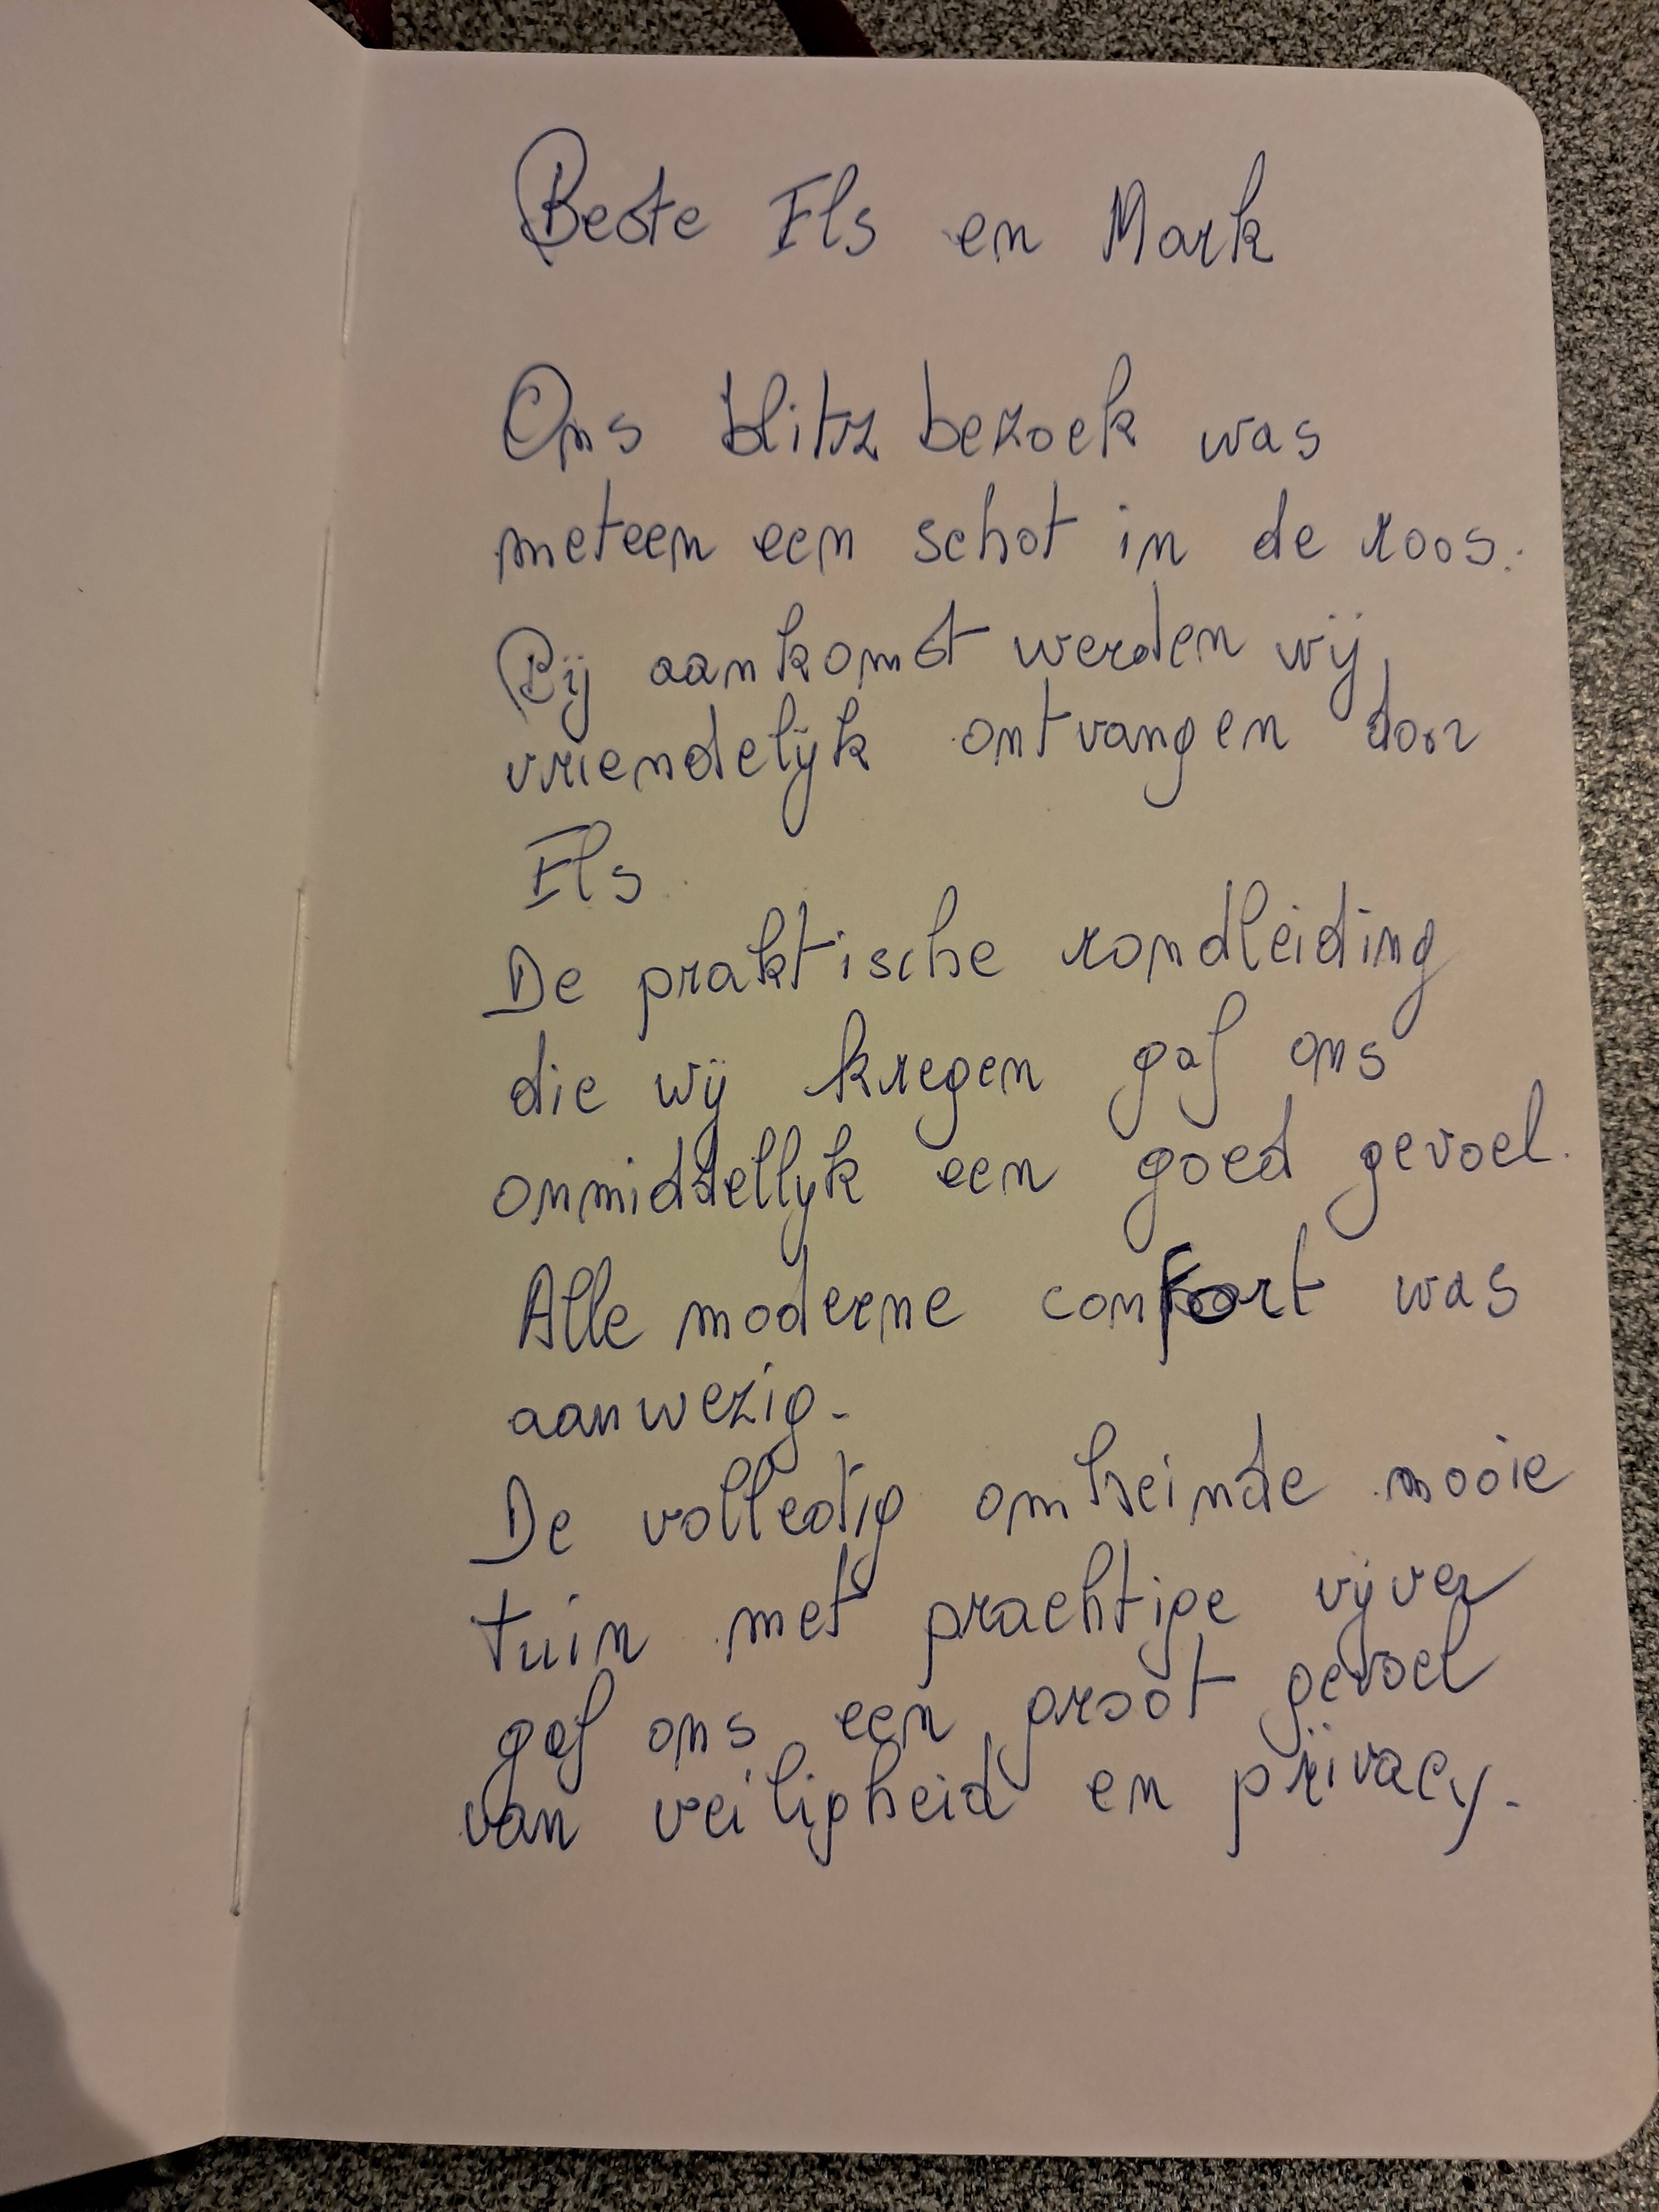 Beste Els en Mark
Ons blitz bezoek was
meteen een schot in de roos.
Bij aankomst werden wij
vriendelijk ontvangen door
Els.
De praktische rondleiding
die wij kregen gaf ons
onmiddellijk een goed gevoel.
Alle moderne comfort was
aanwezig.
De volledig omheinde mooie
tuin met prachtige vijver
gaf ons een groot gevoel
van veiligheid en privacy.